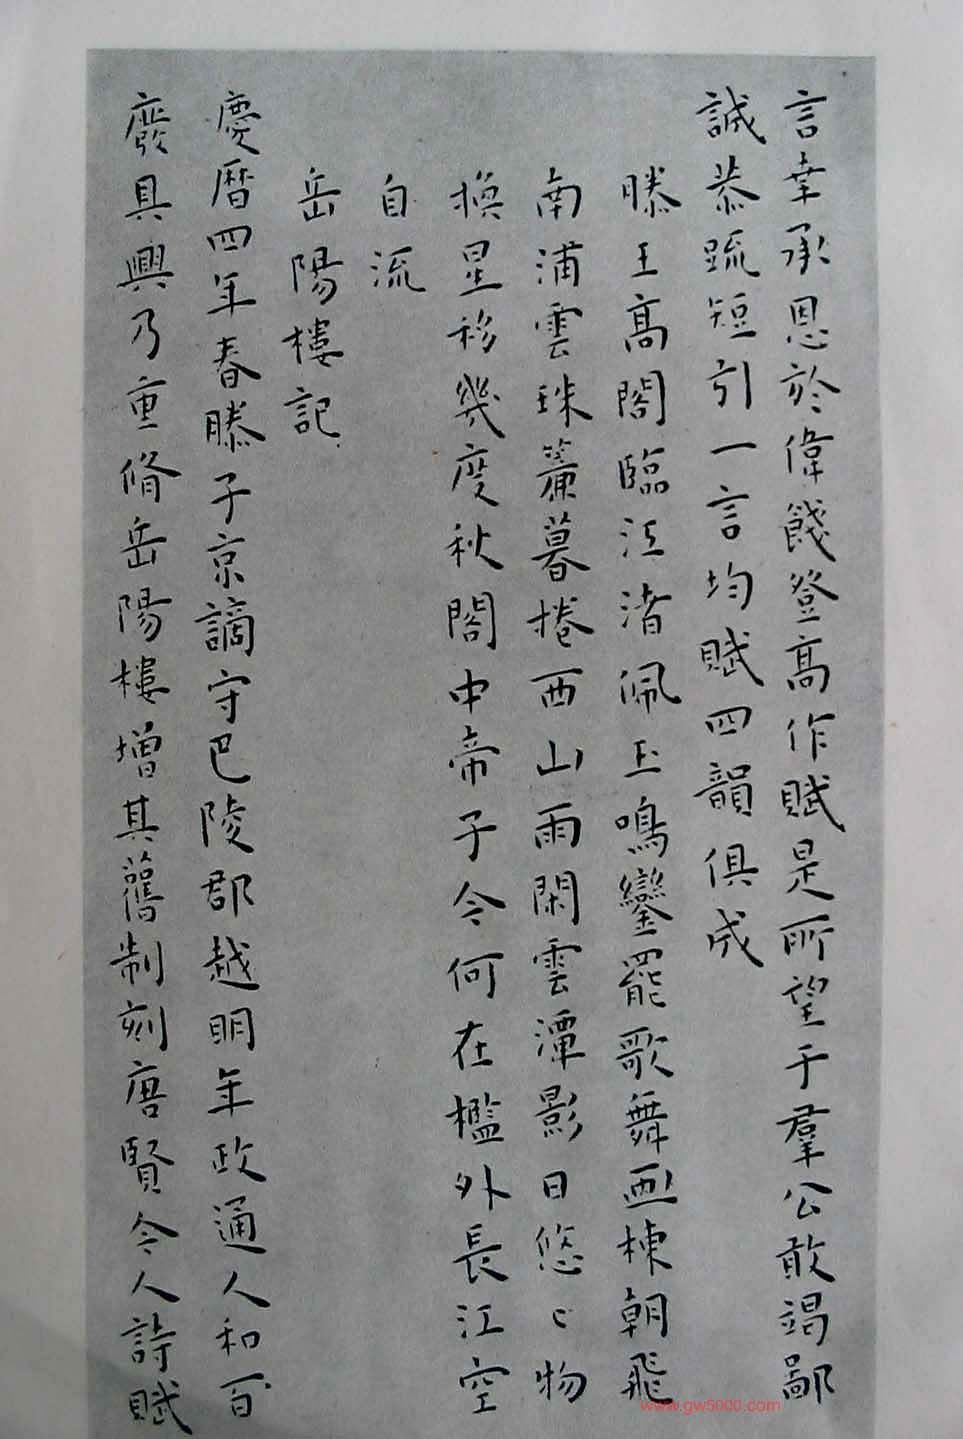 言幸承恩於偉餞登高作賦是所望于羣公敢竭鄙
誠恭疏短引一言均賦四韻俱成
滕王高閣臨江渚佩玉鳴鑾罷歌舞畫棟朝飛
南浦雲珠簾暮捲西山雨閑雲潭影日悠〻物
換星移幾度秋閣中帝子今何在檻外長江空
自流
岳陽樓記
慶曆四年春滕子京謫守巴陵郡越明年政通人和百
廢具興乃重脩岳陽樓增其舊制刻唐賢今人詩賦
www.gw5000.com